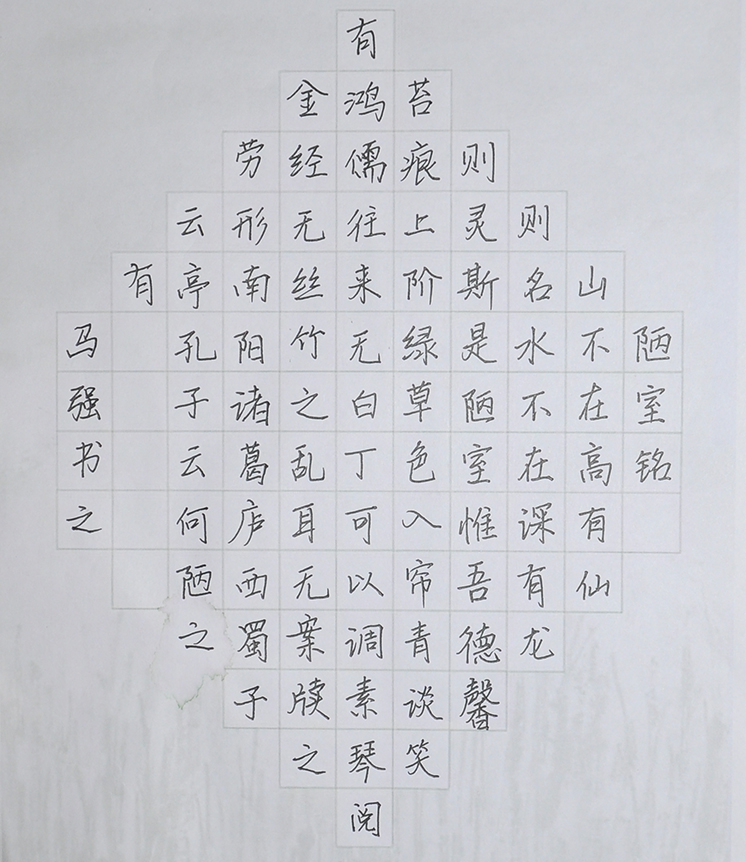 陋室铭
山不在高有仙
则名水不在深有龙
则灵斯是陋室惟吾德馨
苔痕上阶绿草色入帘青谈笑
有鸿儒往来无白丁可以调素琴阅
金经无丝竹之乱耳无案牍之
劳形南阳诸葛庐西蜀子
云亭孔子云何陋之
有
马强书之